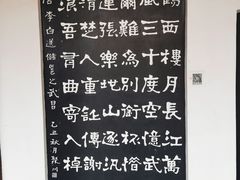 鶴西樓月長江萬
風三十度空憶武
爾難為別銜杯惜
連張樂地山逐汎
謂楚人重詩傳謝
浪吾有曲寄入棹
李白送儲邕之武昌 乙丑秋月張